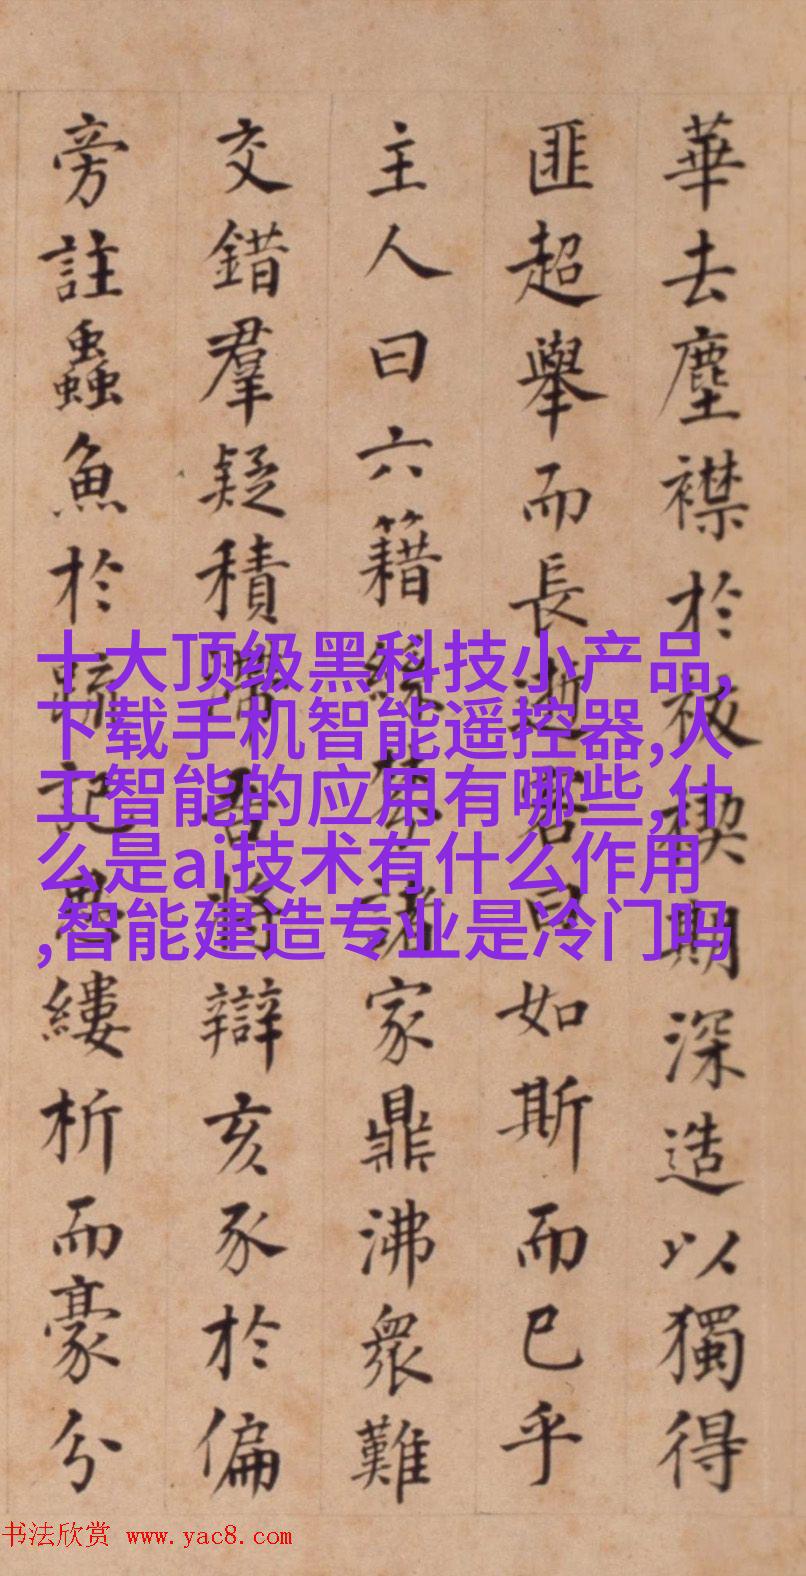 華去塵襟於袚禊期深造以獨得
匪超舉而長逝曰如斯而已乎
主人曰六籍諸家鼎沸眾難
交錯羣疑積吾將辯亥豕於偏
旁註蟲魚於疏記縷析而豪分
十大顶级黑科技小产品,
下载手机智能遥控器,人
工智能的应用有哪些,什
么是ai技术有什么作用
,智能建造专业是冷门吗
书法欣赏 www.yac8.com